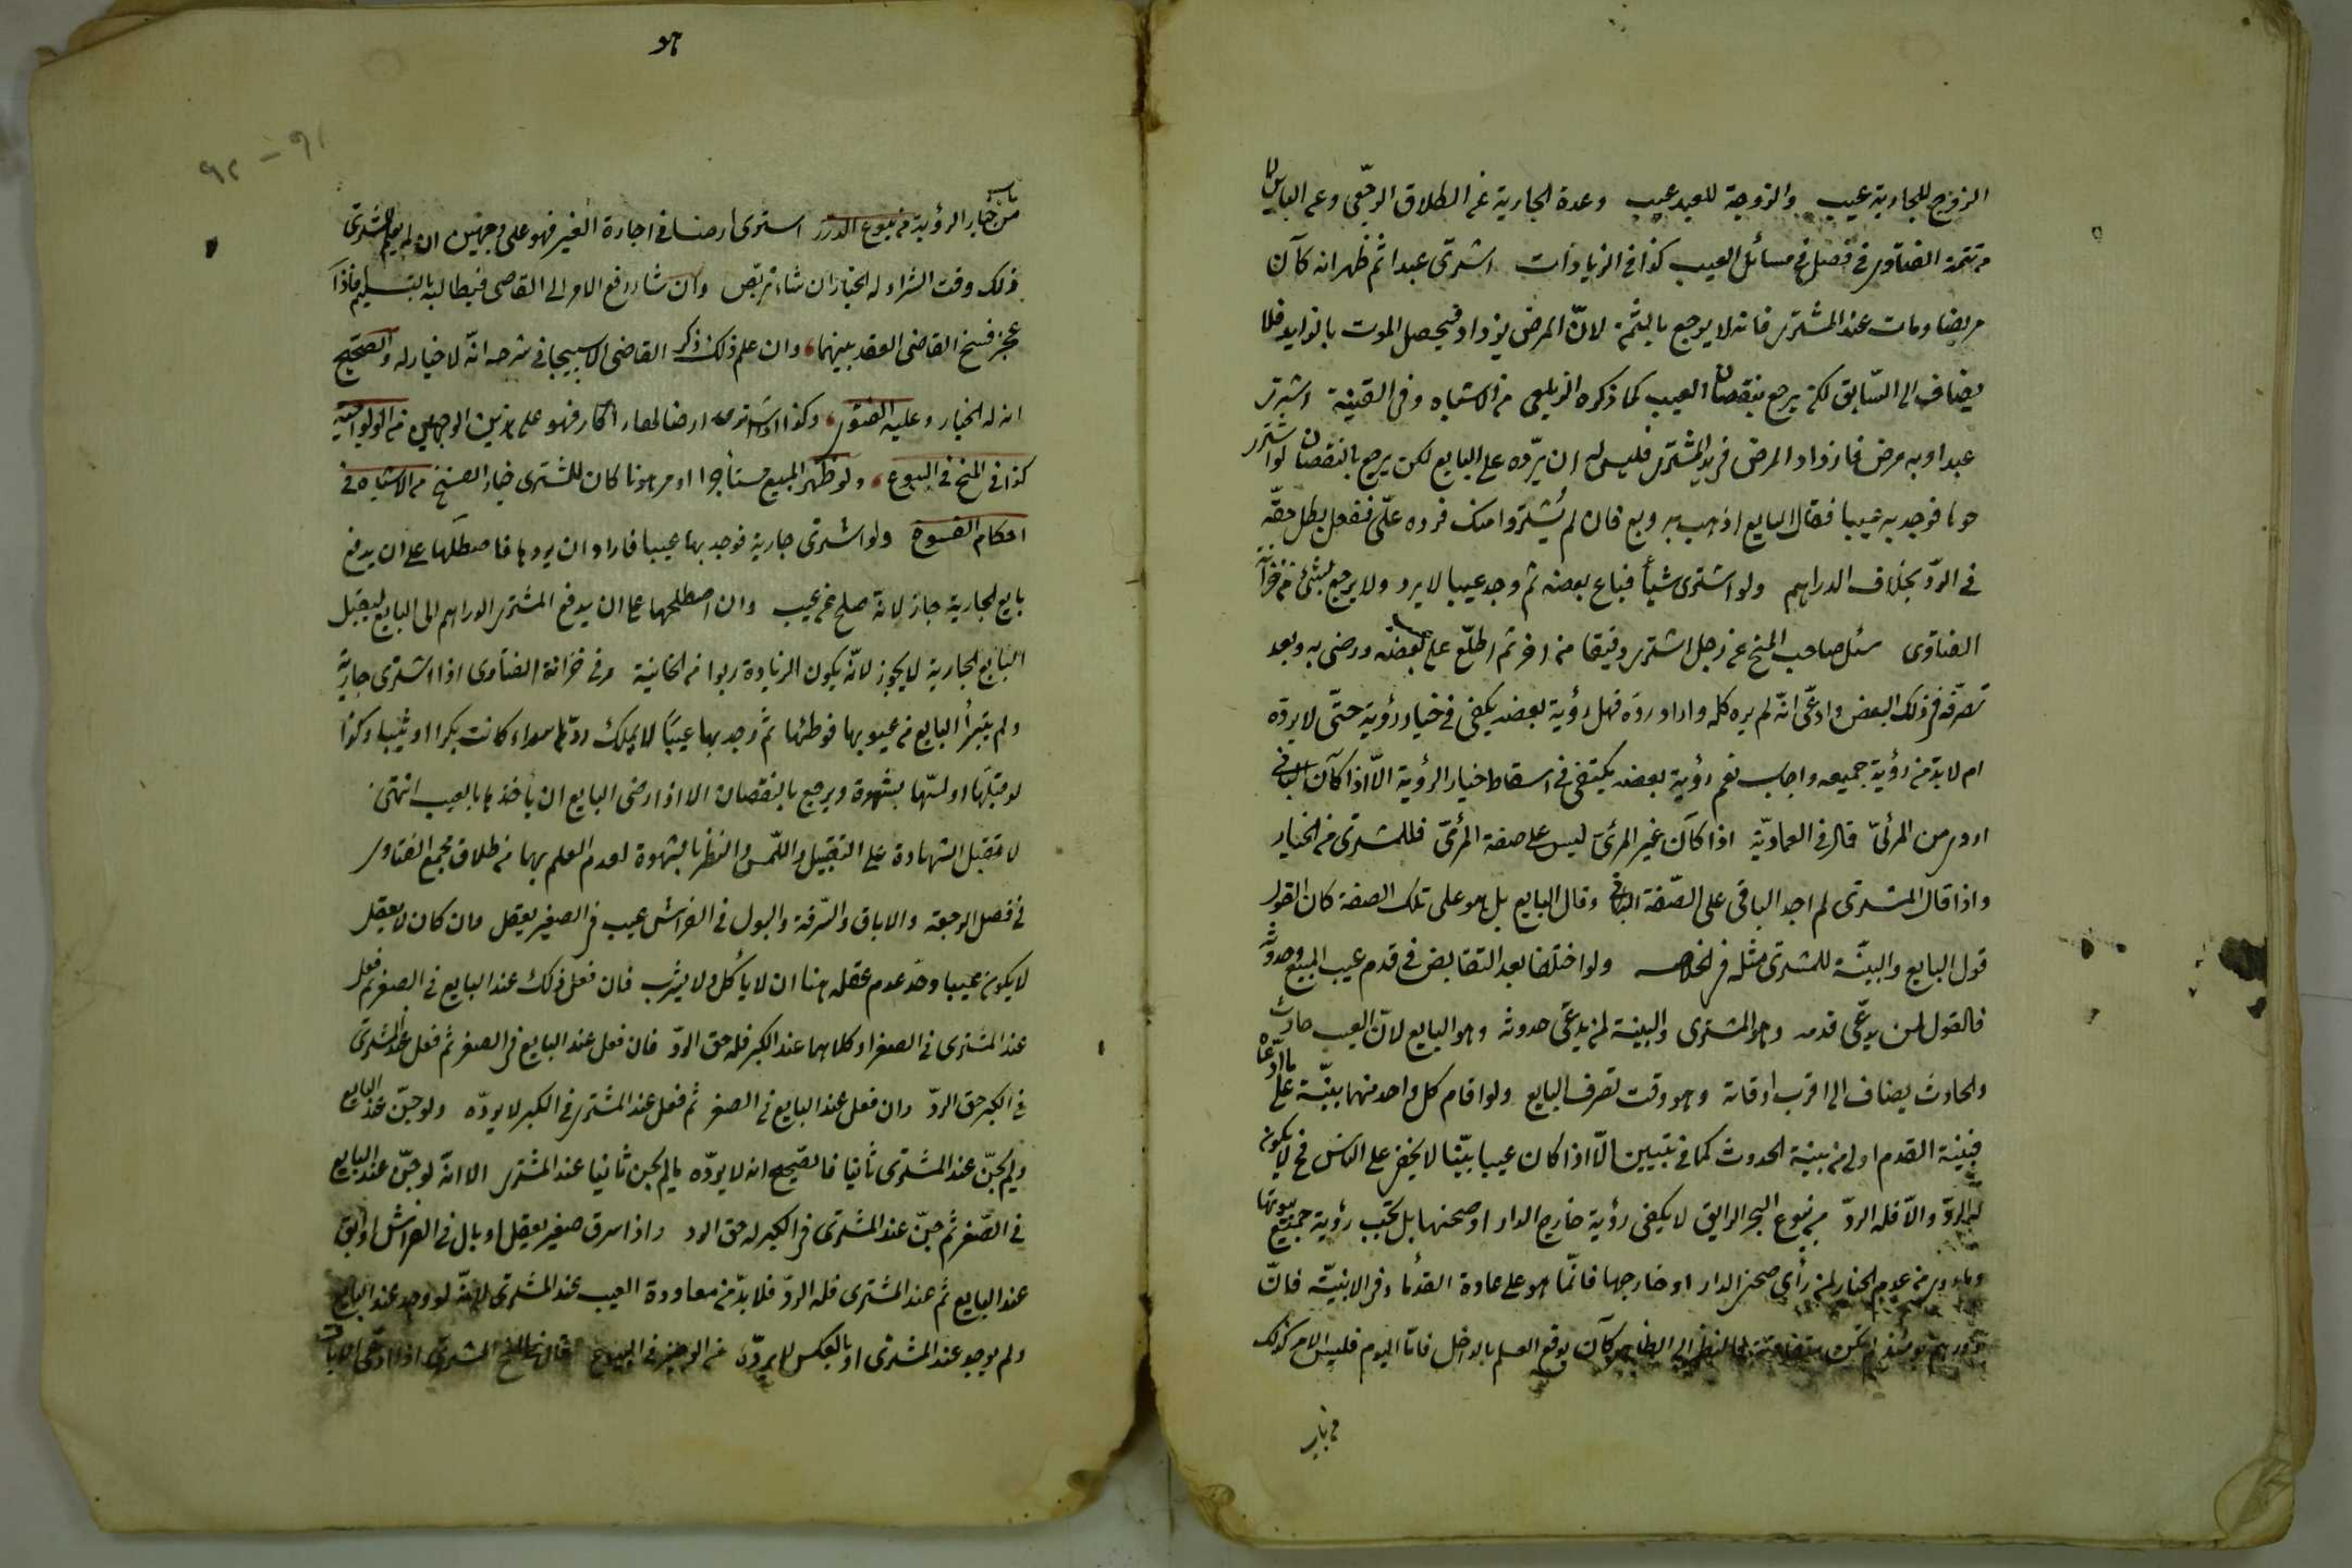 الزوج للجارية عيب والزوجة للعبد عيب وعدة الجارية عن الطلاق الرجعى وعن الباين لا
من تتمة الفتاوى فى فصل فى مسائل العيب كذا فى الزيادات اشترى عبدا ثم ظهر انه كان
مريضا ومات عند المشترى فانه لا يرجع بالثمن لانّ المرض يزداد فيحصل الموت بالزايد فلا
يضاف الى السّابق لكن يرجع بنقصان العيب كما ذكره الزيلعى من الاشباه وفى القنية اشترى
عبدا وبه مرض فازداد المرض فى يد المشترى فليس له ان يرّده على البايع لكن يرجع بالنقصان لو اشترى
فوجد به عيبا فقال البايع اذهب به وبع فان لم يُشترَ فرده علىّ ففعل بطل حقّه
فى الردّ بخلاف الدراهم ولو اشترى شيأ فباع بعضه ثم وجد عيبا لا يرد ولا يرجع بشئ من خزانة
الفتاوى سئل صاحب المنح عن رجل اشترى دقيقا من اخر ثم اطلّع على بعضه ورضى به وبعد
تصرّفه فى ذلك البعض وادعّى انّه لم يره كله واراد ردّه فهل رؤية بعضه يكفى فى خيار رؤية حتّى لا يردّه
ام لا بدّ من رؤية جميعه واجاب نعم رؤية بعضه يكتفى فى اسقاط خيار الرؤية الّا اذا كان الباقى
اردى من المرئىّ قال فى العماديّة اذا كان غير المرئىّ ليس على صفة المرئىّ فللمشترى من الخيار
واذا قال المشترى لم اجد الباقى على الصّفة وقال البايع بل هو على تلك الصفة كان القول
قول البايع والبيّنة للمشترى مثله فى الخلاصه ولو اختلفا بعد التقابض فى قدم عيب المبيع وحدوثه
فالقول لمن يدّعى قدمه وهو المشترى والبينة لمن يدعّى حدوثه وهو البايع لانّ العيب حادث
والحادث يضاف الى اقرب اوقاته وهو وقت تصرف البايع ولو اقام كل واحد منهما بيّنة على ما ادّعاه
فبينة القدم اولى من بينة الحدوث كما فى تبيين الّا اذا كان عيبا بيّنا لا يخفى على الناس فح لا يكون
له الردّ والّا فله الردّ من بيوع البحر الرايق لا يكفى رؤية خارج الدار او صحنها بل يجب رؤية جميع بيوتها
وما روى من عدم الخيار لمن رأى صحن الدار او خارجها فانّما هو على عادة القدما فى الابنيّة فانّ
دورهم يومئذ لم تكن متفاوتة فالنظر الى الظاهر كان يوقع العلم بالداخل فامّا اليوم فليس الامر كذلك
من باب
هو
٩١ – ٩٢
من باب خيار الرؤية من بيوع الدرر اشترى ارضا فى اجارة الغير فهو على وجهين ان لم يعلم المشترى
ذلك وقت الشراء له الخيار ان شاء تربّص وان شاء رفع الامر الى القاضى فيطالبه بالتسليم فاذا
عجز فسخ القاضى العقد بينهما وان علم ذلك ذكر القاضى الاسبيجابى فى شرحه انّه لا خيار له والصحيح
انه له الخيار وعليه الفتوى وكذا اذا اشترى ارضا لها اكار فهو على هذين الوجهين من الولوالجيه
كذا فى المنح فى البيوع ولو ظهر المبيع مستأجرا او مرهونا كان للمشترى خيار الفسخ من الاشباه فى
احكام الفسوخ ولو اشترى جارية فوجد بها عيبا فاراد ان يردها فاصطلحا على ان يدفع
بايع الجارية جاز لانّه صلح عن عيب وان اصطلحها على ان يدفع المشترى الدراهم الى البايع ليقبل
البايع الجارية لا يجوز لانّه يكون الزيادة ربوا من الخانية وفى خزانة الفتاوى اذا اشترى جارية
ولم يتبرأ البايع من عيوبها فوطئها ثم وجد بها عيبًا لا يملك ردّها سواء كانت بكرا او ثيبا وكذا
لو قبّلها او لمسّها بشهوة ويرجع بالنقصان الا اذا رضى البايع ان يأخذها بالعيب انتهى
لا تقبل الشهادة على التقبيل واللّمس والنظر بالشهوة لعدم العلم بها من طلاق مجمع الفتاوى
فى فصل الرجعة والاباق والسّرقة والبول فى الفراش عيب فى الصغير يعقل وان كان لا يعقل
لا يكون عيبا وحدّ عدم عقله هنا ان لا يأكل ولا يشرب فان فعل ذلك عند البايع فى الصغر ثم فعل
عند المشترى فى الصغر او كلاهما عند الكبر فله حق الردّ فان فعل عند البايع فى الصغر ثم فعل عند المشترى
فى الكبر حق الردّ وان فعل عند البايع فى الصغر ثم فعل عند المشترى فى الكبر لا يردّه ولو جنّ عند البايع
ولم يجنّ عند المشترى ثانيا فالصّحيح انه لا يردّه ما لم يجن ثانيا عند المشترى الا انّه لو جنّ عند البايع
فى الصّغر ثم جنّ عند المشترى فى الكبر له حق الرد واذا سرق صغير يعقل او بال فى الفراش او ابق
عند البايع ثم عند المشترى فله الردّ فلا بدّ من معاودة العيب عند المشترى لانّه لو وجد عند البايع
ولم يوجد عند المشترى او بالعكس لا يردّه من الوجيز فى البيوع المشترى اذا ادّعى الاباق